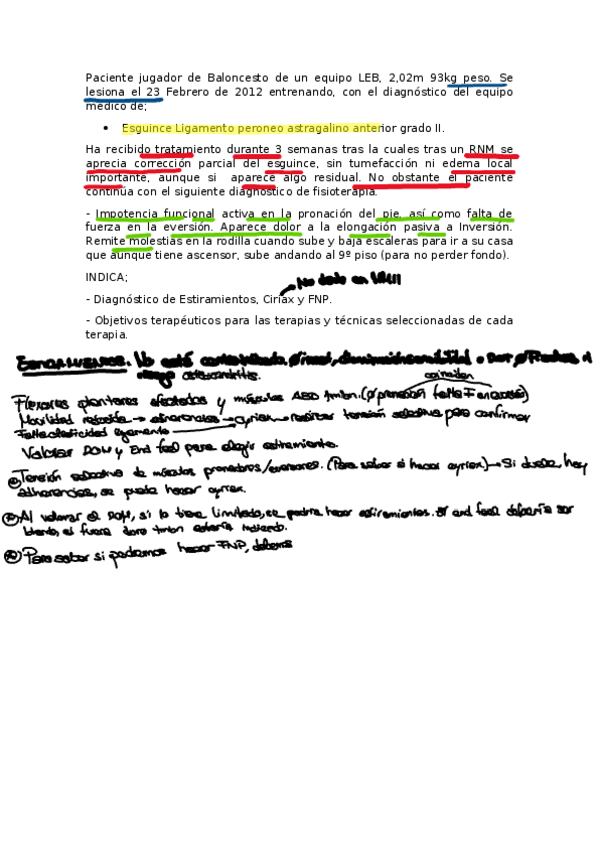 Paciente jugador de Baloncesto de un equipo LEB, 2,02m 93kg peso. Se
lesiona el 23 Febrero de 2012 entrenando, con el diagnóstico del equipo
médico de;
• Esguince Ligamento peroneo astragalino anterior grado II.
Ha recibido tratamiento durante 3 semanas tras la cuales tras un RNM se
aprecia corrección parcial del esguince, sin tumefacción ni edema local
importante, aunque si aparece algo residual. No obstante el paciente
continúa con el siguiente diagnóstico de fisioterapia.
- Impotencia funcional activa en la pronación del pie, así como falta de
fuerza en la eversión. Aparece dolor a la elongación pasiva a Inversión.
Remite molestias en la rodilla cuando sube y baja escaleras para ir a su casa
que aunque tiene ascensor, sube andando al 9º piso (para no perder fondo).
INDICA;
No dado en
- Diagnóstico de Estiramientos, Ciriax y FNP.
- Objetivos terapéuticos para las terapias y técnicas seleccionadas de cada
terapia.
No está contraindicado.
riesgo osteocondritis.
coinciden
Flexores plantares afectados y músculos ABD (Ø pronación falta F en)
Movilidad reducida → adherencias → cyriax → realizar tensión selectiva para confirmar
Falta elasticidad ligamento
Valorar ROM y End feel para elegir estiramiento.
Tensión selectiva de músculos pronadores/eversores. (Para saber si hacer cyriax) → Si duele, hay
adherencias, se puede hacer cyriax.
Al valorar el ROM, si lo tiene limitado, se podría hacer estiramientos. El end feel debería ser
blando, si fuera duro estaría
Para saber si podemos hacer FNP, debemos